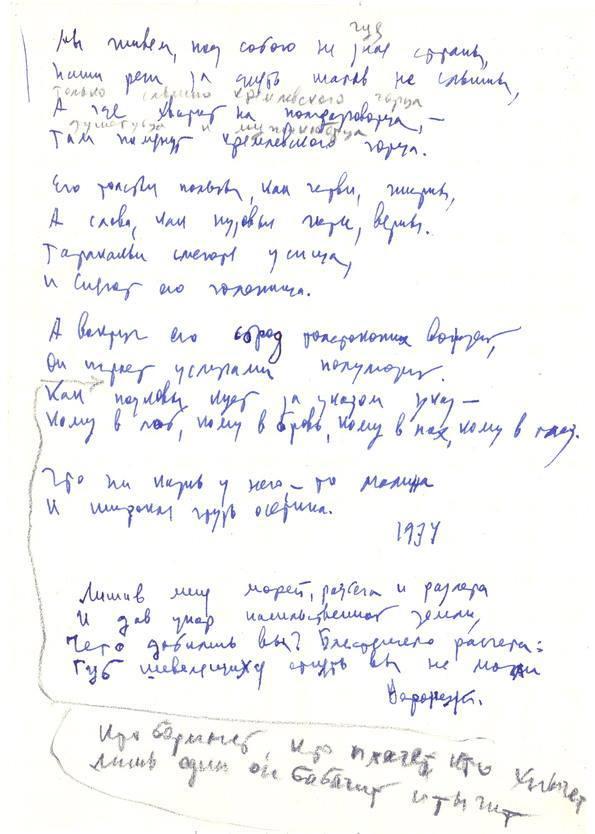 чуя
Мы живем, под собою не зная страны,
Наши речи за десять шагов не слышны,
только слышно кремлевского горца
А где хватит на полразговорца, —
душегубца и мужикоборца
Там помянут кремлевского горца.
Его толстые пальцы, как черви, жирны,
А слова, как пудовые гири, верны.
Тараканьи смеются усища,
И сияют его голенища.
А вокруг его сброд толстокожих вождей,
Он играет услугами полулюдей.
Как подковы кует за указом указ —
Кому в лоб, кому в бровь, кому в пах, кому в глаз.
Что ни казнь у него, — то малина
И широкая грудь осетина.
1934
Лишив меня морей, разбега и разлета
И дав упор насильственной земли,
Чего добились вы? Блестящего расчета:
Губ шевелящихся отнять вы не могли
Воронеж.
Кто бормочет, кто плачет, кто хнычет
Лишь один он бабачит и тычит